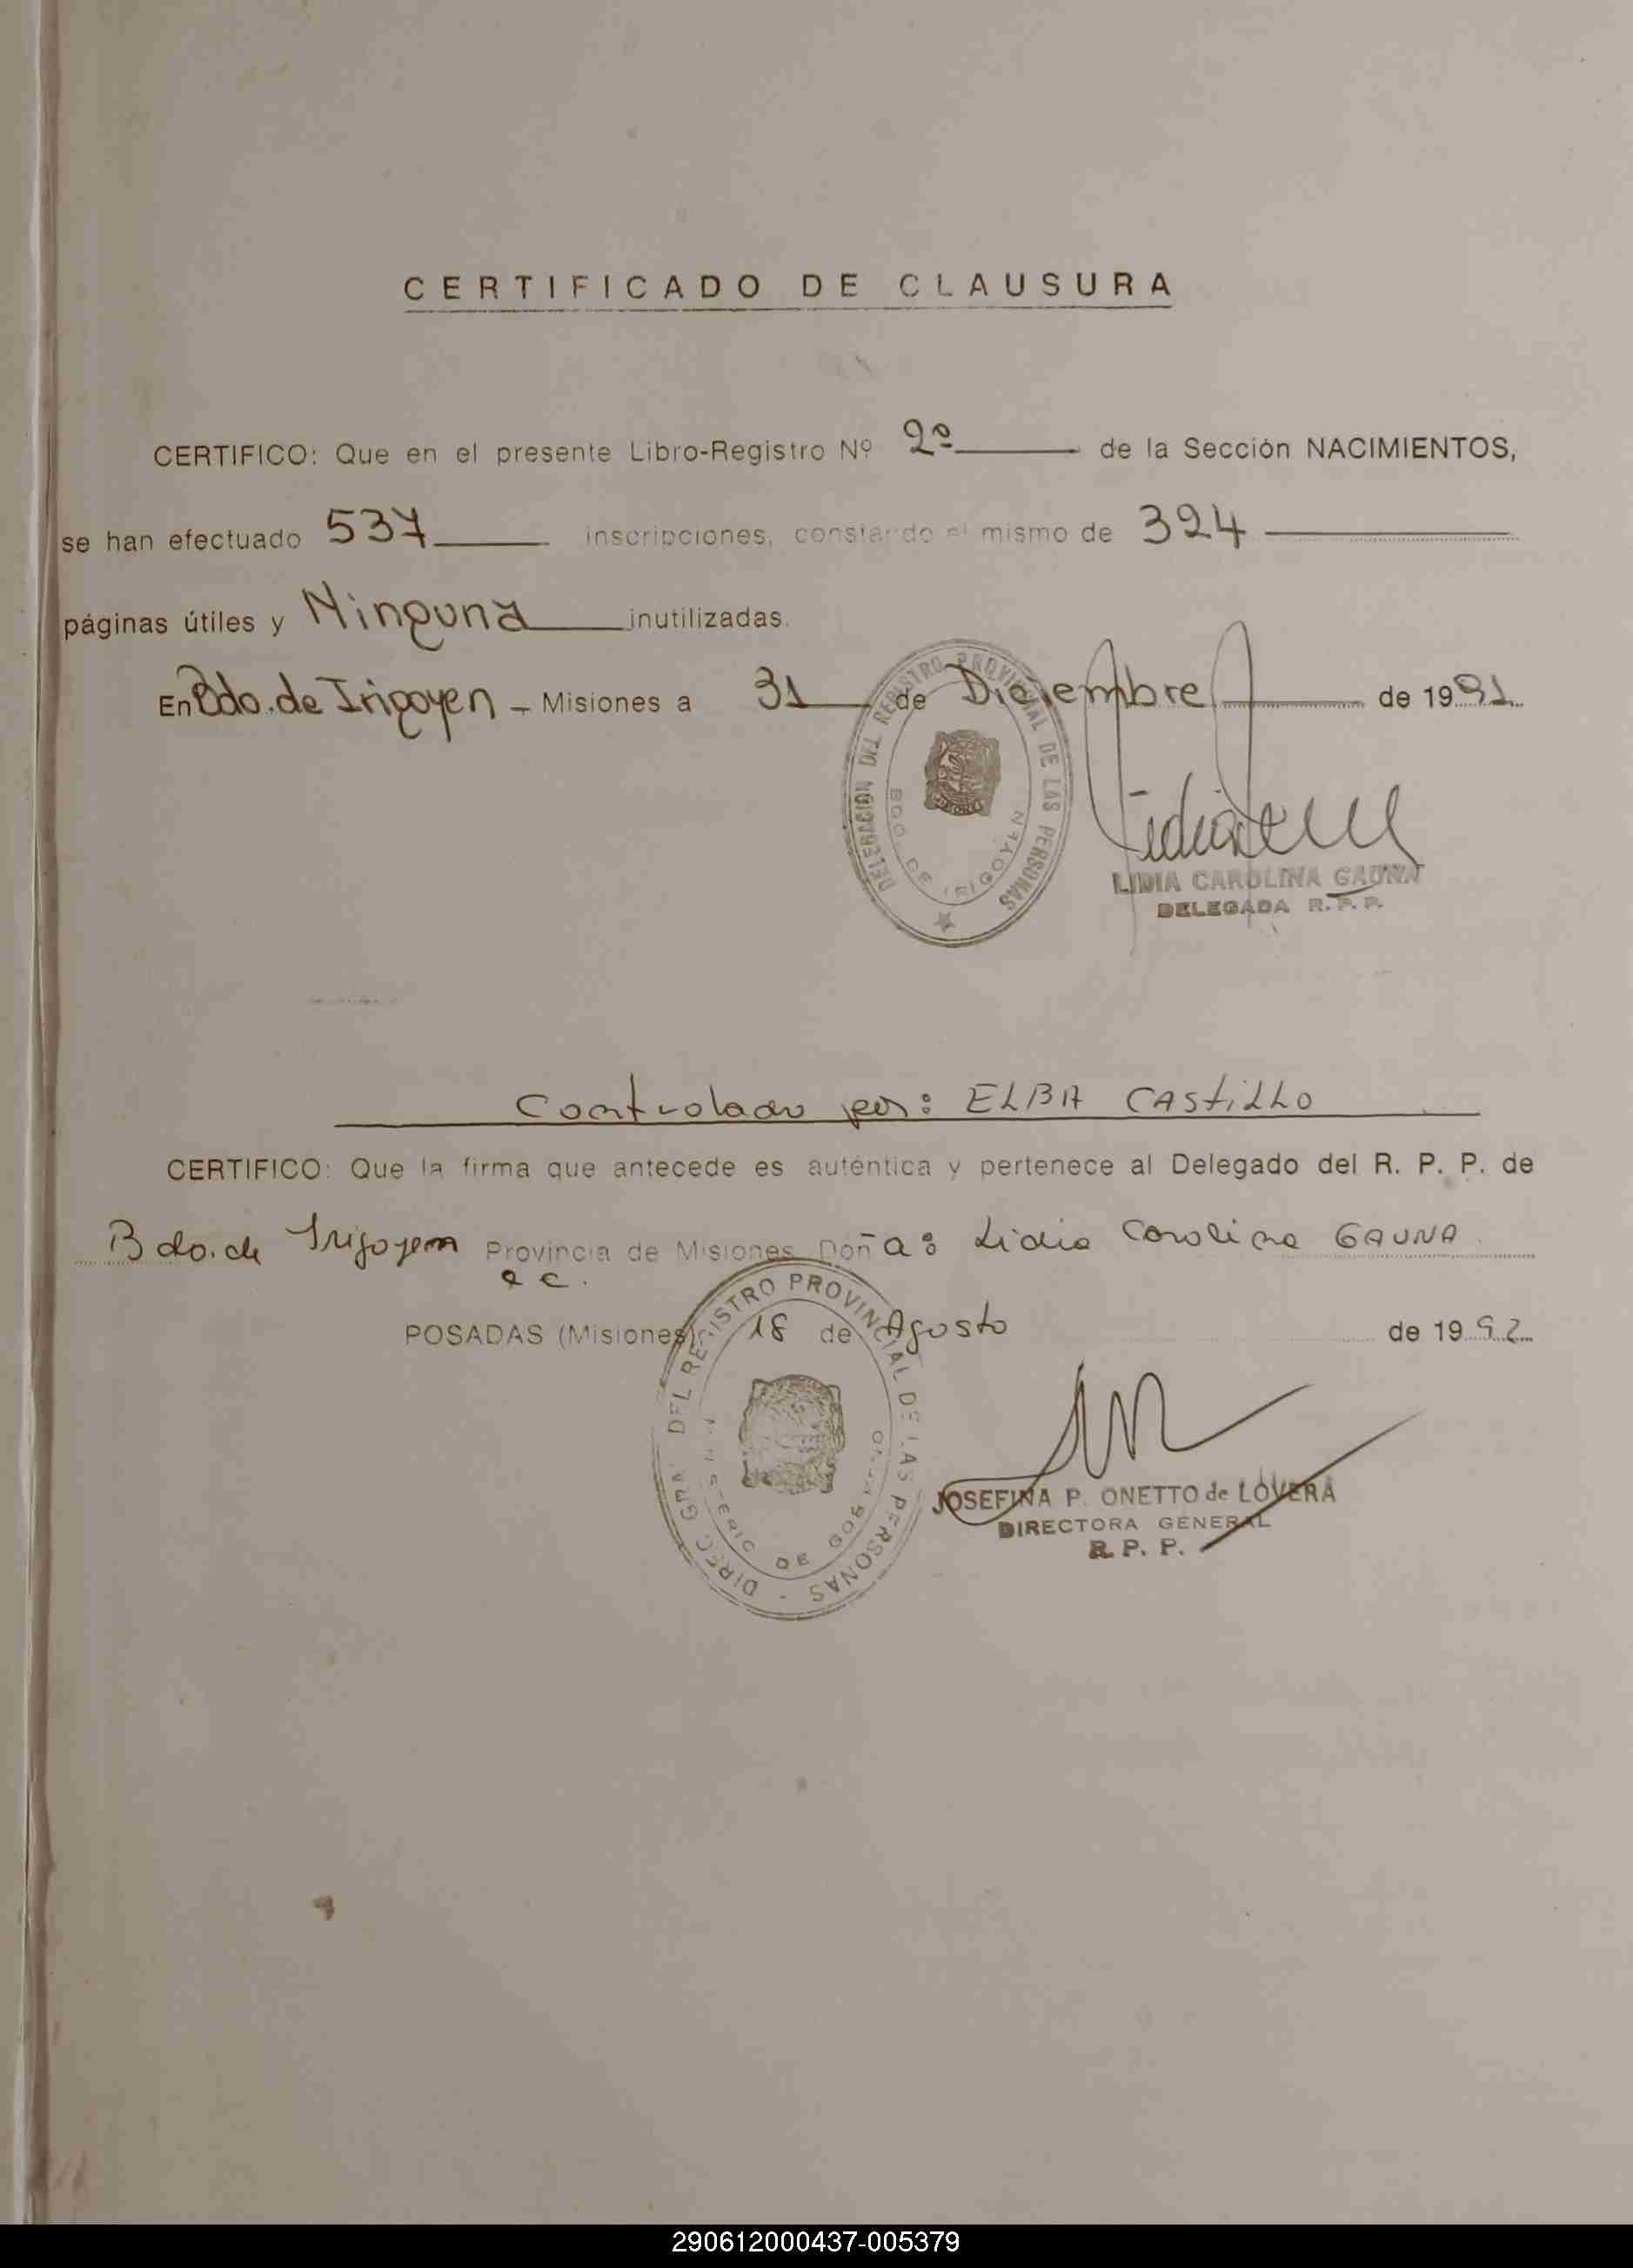 CERTIFICADO DE CLAUSURA
CERTIFICO: Que en el presente Libro-Registro Nº 2º de la Sección NACIMIENTOS,
se han efectuado 537 inscripciones, constando el mismo de 324
páginas útiles y Ninguna inutilizadas.
En Bdo. de Irigoyen - Misiones a 31 de Diciembre de 1991
DELEGACION DEL REGISTRO PROVINCIAL DE LAS PERSONAS
BDO. DE IRIGOYEN
LIDIA CAROLINA GAUNA
DELEGADA R. P. P.
Controlado por: ELBA CASTILLO
CERTIFICO: Que la firma que antecede es auténtica y pertenece al Delegado del R. P. P. de
Bdo. de Irigoyen Provincia de Misiones Doña: Lidia Carolina GAUNA
ec.
POSADAS (Misiones), 18 de Agosto de 1992
DIREC. GRAL. DEL REGISTRO PROVINCIAL DE LAS PERSONAS -
MINISTERIO DE GOBIERNO
JOSEFINA P. ONETTO de LOVERA
DIRECTORA GENERAL
R. P. P.
290612000437-005379